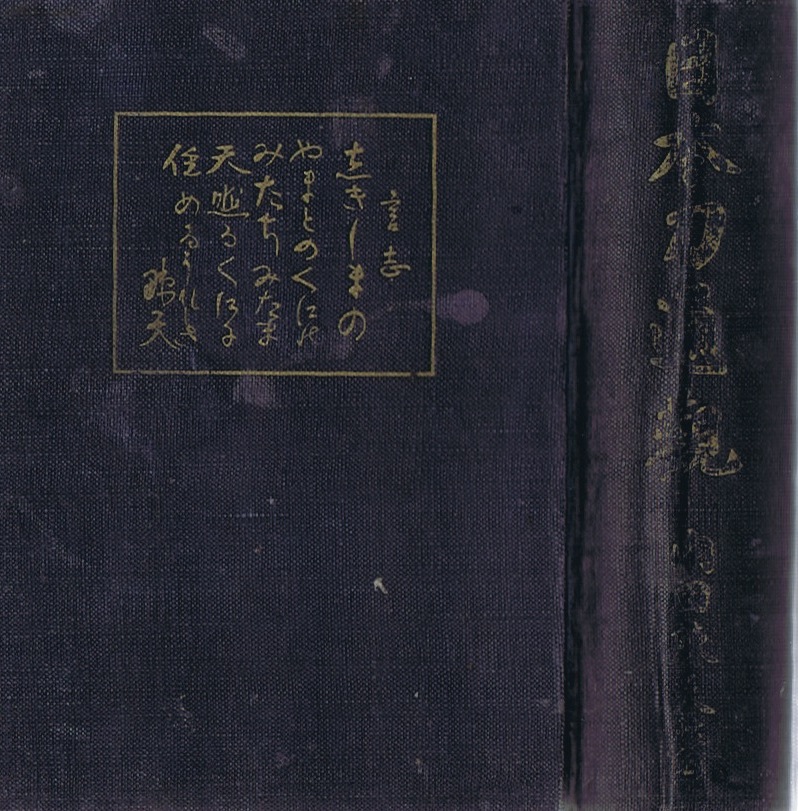 日本刀通観
内田疎天著
言志
志きしまの
やまとのくには
みたちみたま
天照るくにに
住めるうれしさ
疎天